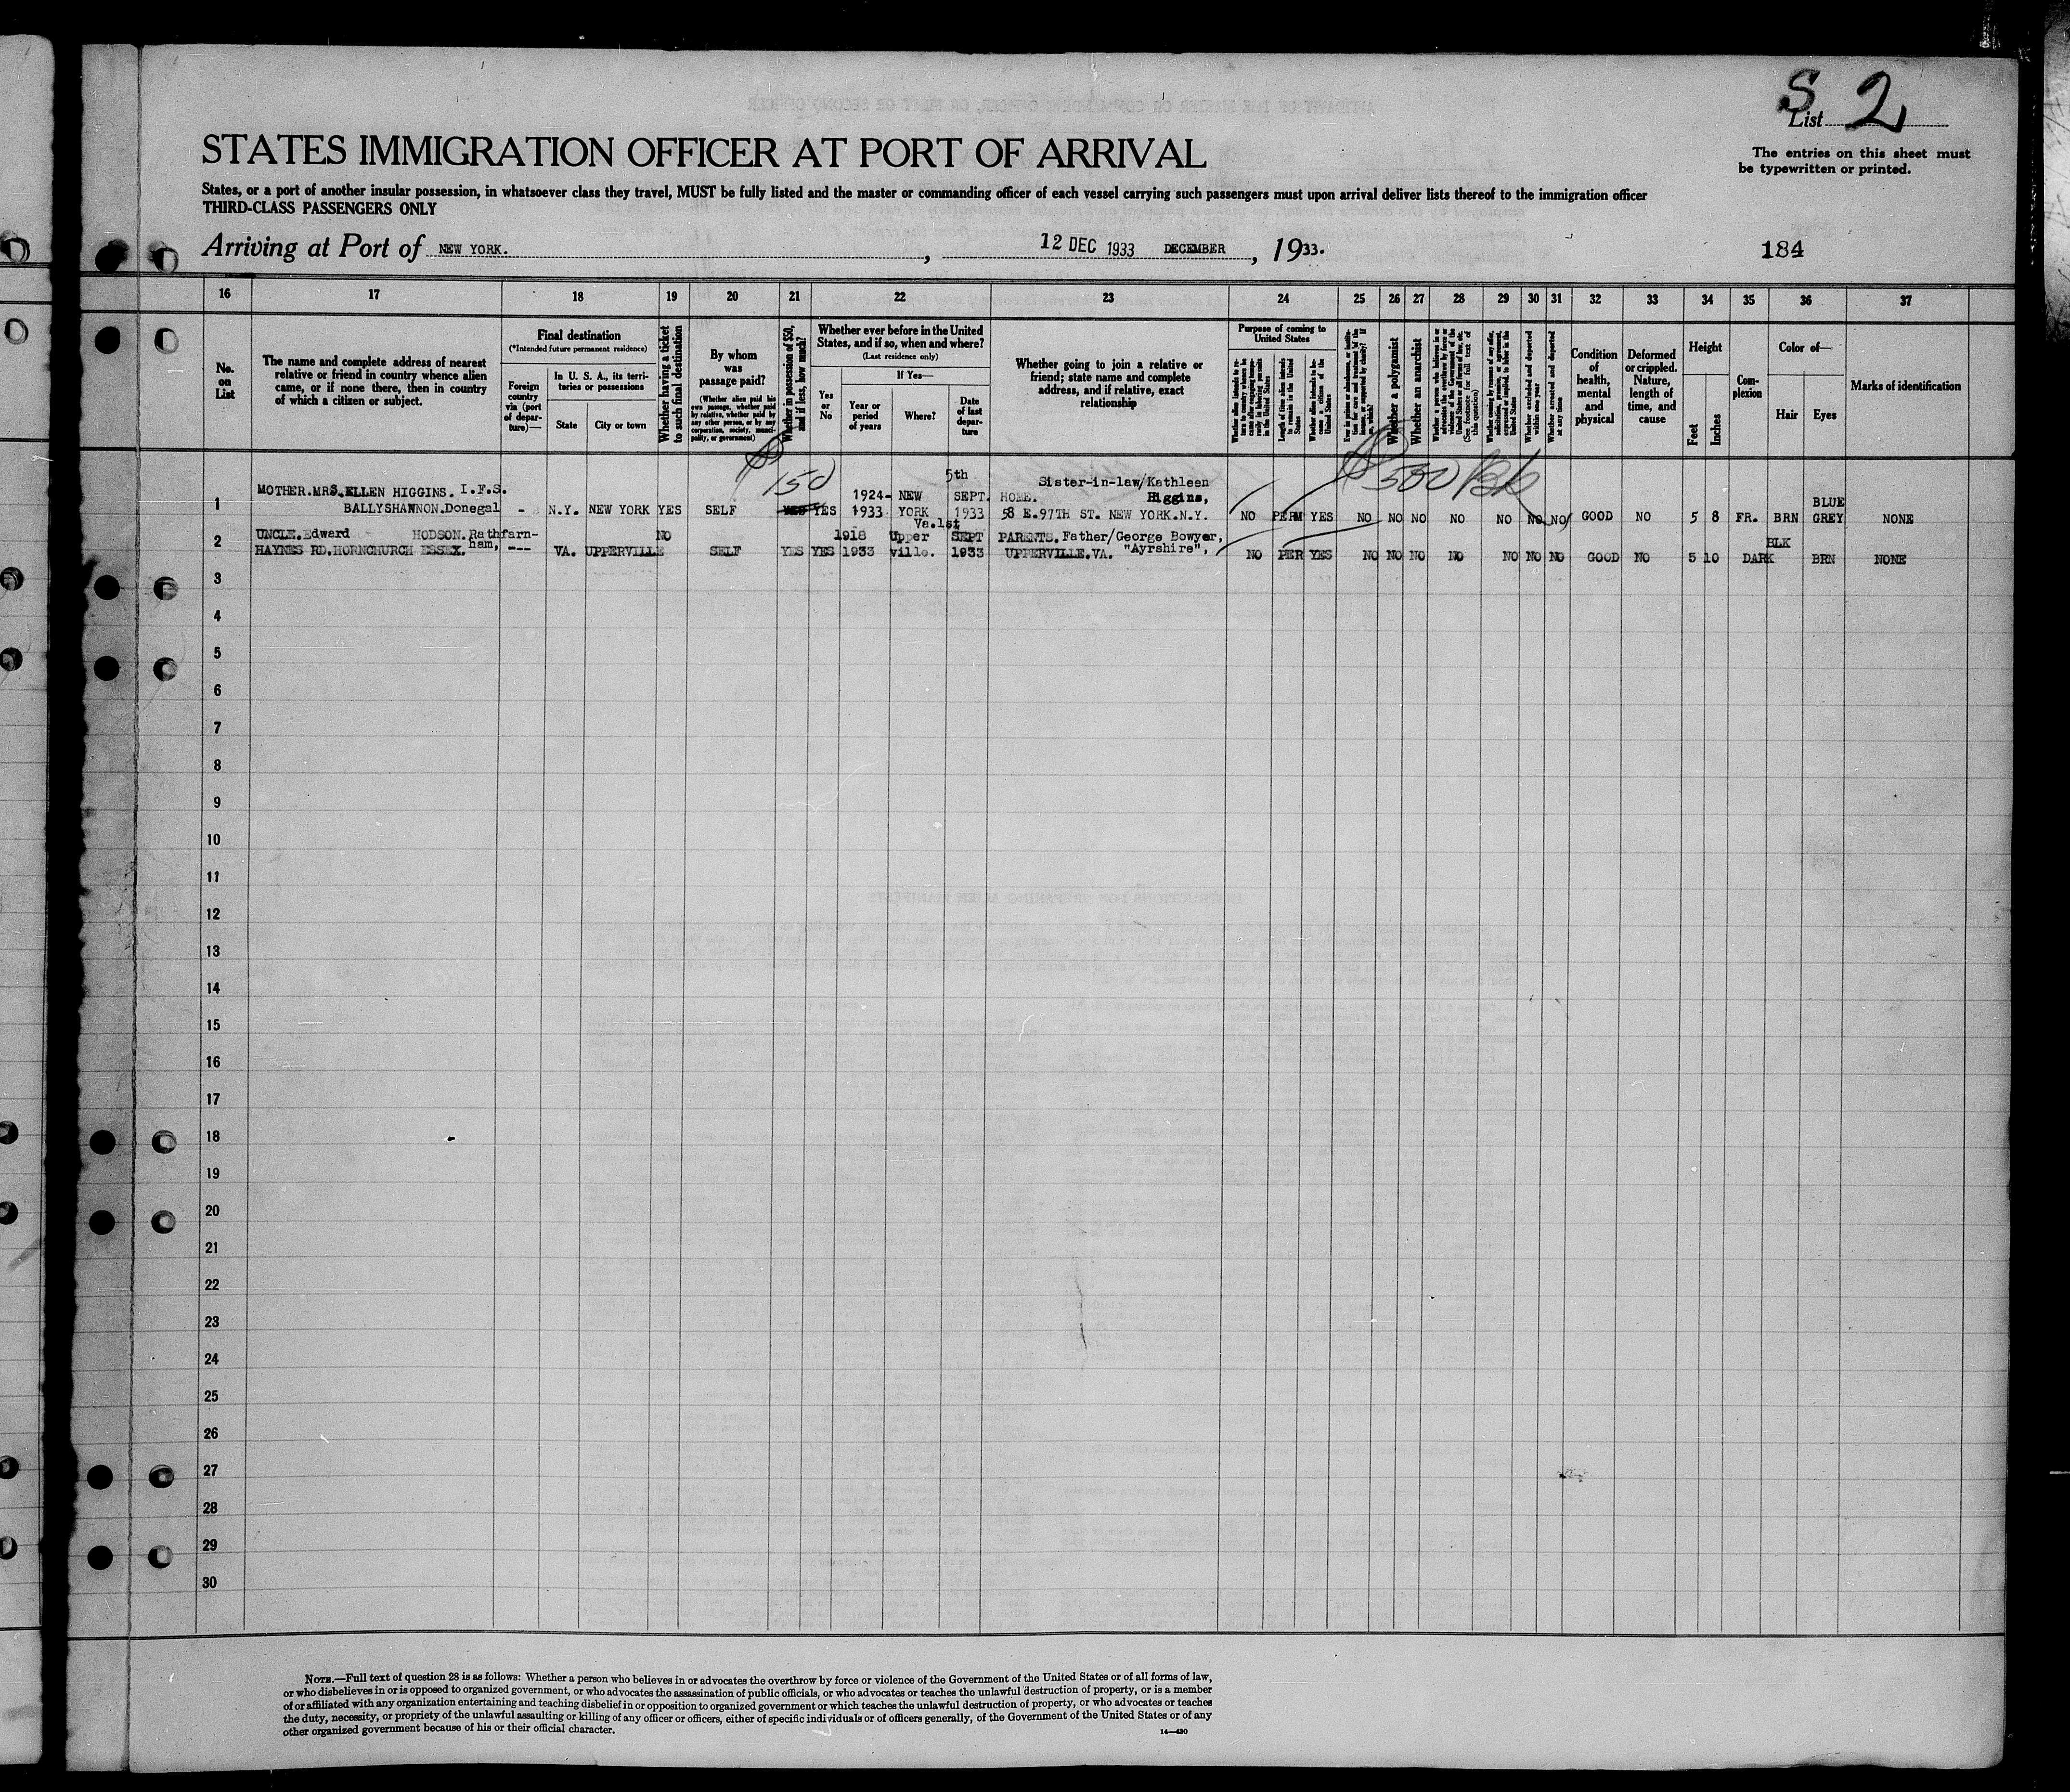 S. 2
List
The entries on this sheet must
be typewritten or printed.
STATES IMMIGRATION OFFICER AT PORT OF ARRIVAL
States, or a port of another insular possession, in whatsoever class they travel, MUST be fully listed and the master or commanding officer of each vessel carrying such passengers must upon arrival deliver lists thereof to the immigration officer
THIRD-CLASS PASSENGERS ONLY
Arriving at Port of NEW YORK. , 12 DEC 1933 DECEMBER , 1933.
184
16 17 18 19 20 21 22 23 24 25 26 27 28 29 30 31 32 33 34 35 36 37
No.
on
List
The name and complete address of nearest
relative or friend in country whence alien
came, or if none there, then in country
of which a citizen or subject.
Final destination
(*Intended future permanent residence)
Foreign
country
via (port
of depar-
ture)—
In U. S. A., its terri-
tories or possessions
State
City or town
Whether having a ticket
to such final destination
By whom
was
passage paid?
(Whether alien paid his
own passage, whether paid
by relative, whether paid by
any other person, or by any
corporation, society, munici-
pality, or government)
Whether in possession of $50,
and if less, how much?
Whether ever before in the United
States, and if so, when and where?
(Last residence only)
Yes
or
No
If Yes—
Year or
period
of years
Where?
Date
of last
depar-
ture
Whether going to join a relative or
friend; state name and complete
address, and if relative, exact
relationship
Purpose of coming to
United States
Length of time alien intends
to remain in the United
States
Whether alien intends to be-
come a citizen of the
United States
Whether a polygamist
Whether an anarchist
Whether excluded and deported
within one year
Whether arrested and deported
at any time
Condition
of
health,
mental
and
physical
Deformed
or crippled.
Nature,
length of
time, and
cause
Height
Feet
Inches
Com-
plexion
Color of—
Hair
Eyes
Marks of identification
$150
$300
5th
1 MOTHER.MRS.ELLEN HIGGINS. I.F.S. 1924- NEW SEPT. HOME. Sister-in-law/Kathleen Higgins, BLUE
BALLYSHANNON.Donegal - N.Y. NEW YORK YES SELF YES YES 1933 YORK 1933 58 E.97TH ST. NEW YORK.N.Y. NO PERM YES NO NO NO NO NO NO NO GOOD NO 5 8 FR. BRN GREY NONE
Va.1st
2 UNCLE.Edward HODSON.Rathfarn- NO 1918 Upper SEPT PARENTS.Father/George Bowyer, BLK
HAYNES RD.HORNCHURCH ESSEX. ham, --- VA. UPPERVILLE SELF YES YES 1933 ville. 1933 UPPERVILLE.VA. "Ayrshire", NO PER YES NO NO NO NO NO NO NO GOOD NO 5 10 DARK BRN NONE
3
4
5
6
7
8
9
10
11
12
13
14
15
16
17
18
19
20
21
22
23
24
25
26
27
28
29
30
NOTE.—Full text of question 28 is as follows: Whether a person who believes in or advocates the overthrow by force or violence of the Government of the United States or of all forms of law,
or who disbelieves in or is opposed to organized government, or who advocates the assassination of public officials, or who advocates or teaches the unlawful destruction of property, or is a member
of or affiliated with any organization entertaining and teaching disbelief in or opposition to organized government or which teaches the unlawful destruction of property, or who advocates or teaches
the duty, necessity, or propriety of the unlawful assaulting or killing of any officer or officers, either of specific individuals or of officers generally, of the Government of the United States or of any
other organized government because of his or their official character.
14—430